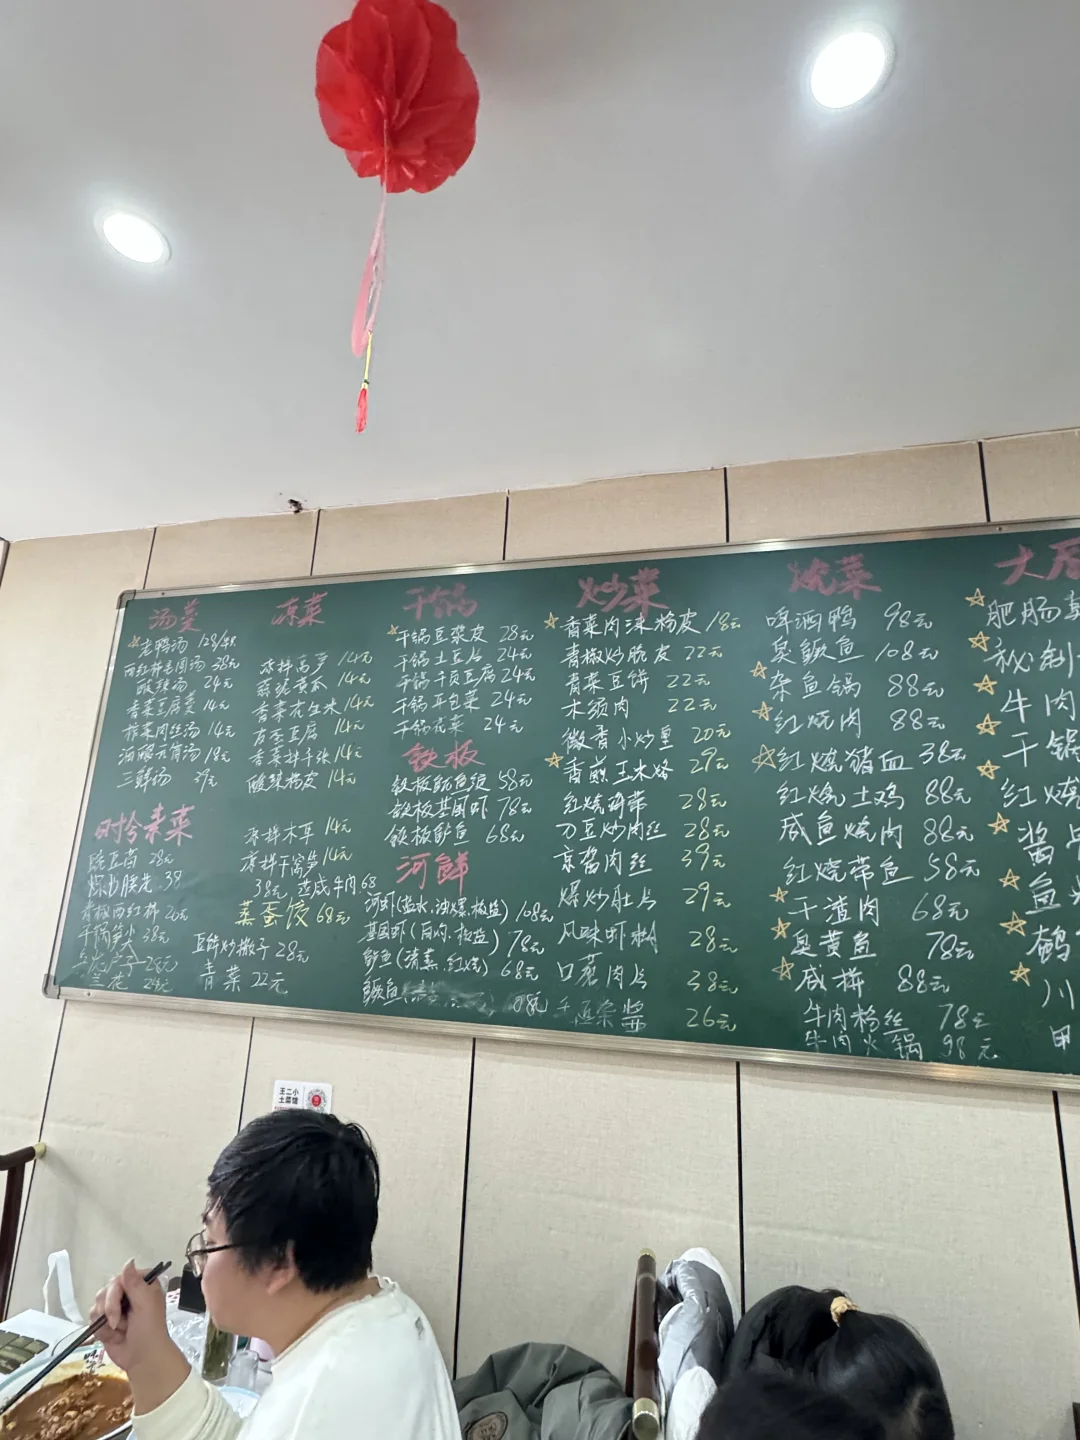 汤菜
老鸭汤 128/锅
西红柿蛋园汤 38元
酸辣汤 24元
青菜豆腐羹 14元
榨菜肉丝汤 14元
酒酿元宵汤 18元
三鲜汤 39元
时令素菜
豌豆苗 28元
38
青椒西红柿 20元
干锅笋 38元
28元
兰花 28元
凉菜
凉拌莴笋 14元
蒜泥黄瓜 14元
香菜花生米 14元
豆腐 14元
香菜拌千张 14元
酸辣粉皮 14元
凉拌木耳 14元
凉拌干莴笋 14元
38元 卤咸牛肉 68
蒸蛋饺 68元
豆饼炒撒子 28元
青菜 22元
干锅
干锅豆浆皮 28元
干锅土豆片 24元
干锅千页豆腐 24元
干锅平包菜 24元
干锅花菜 24元
铁板
铁板鱿鱼须 58元
铁板基围虾 78元
铁板鲈鱼 68元
河鲜
河虾(盐水,油爆,椒盐) 108元
基围虾(白灼,椒盐) 78元
鲈鱼(清蒸,红烧) 68元
鳜鱼
炒菜
香菜肉沫粉皮 18元
青椒炒脆皮 22元
青菜豆饼 22元
木须肉 22元
微香小炒皇 20元
香煎玉米烙 29元
红烧海带 28元
刀豆炒肉丝 28元
京酱肉丝 39元
爆炒肚片 29元
风味虾 28元
口蘑肉片 38元
26元
烧菜
啤酒鸭 98元
臭鳜鱼 108元
杂鱼锅 88元
红烧肉 88元
红烧猪血 38元
红烧土鸡 88元
咸鱼烧肉 88元
红烧带鱼 58元
干渣肉 68元
臭黄鱼 78元
咸拼 88元
牛肉粉丝 78元
牛肉火锅 98元
大
肥肠
秘制
牛肉
干锅
红烧
酱
鱼
鹌
川
王二小
土菜馆